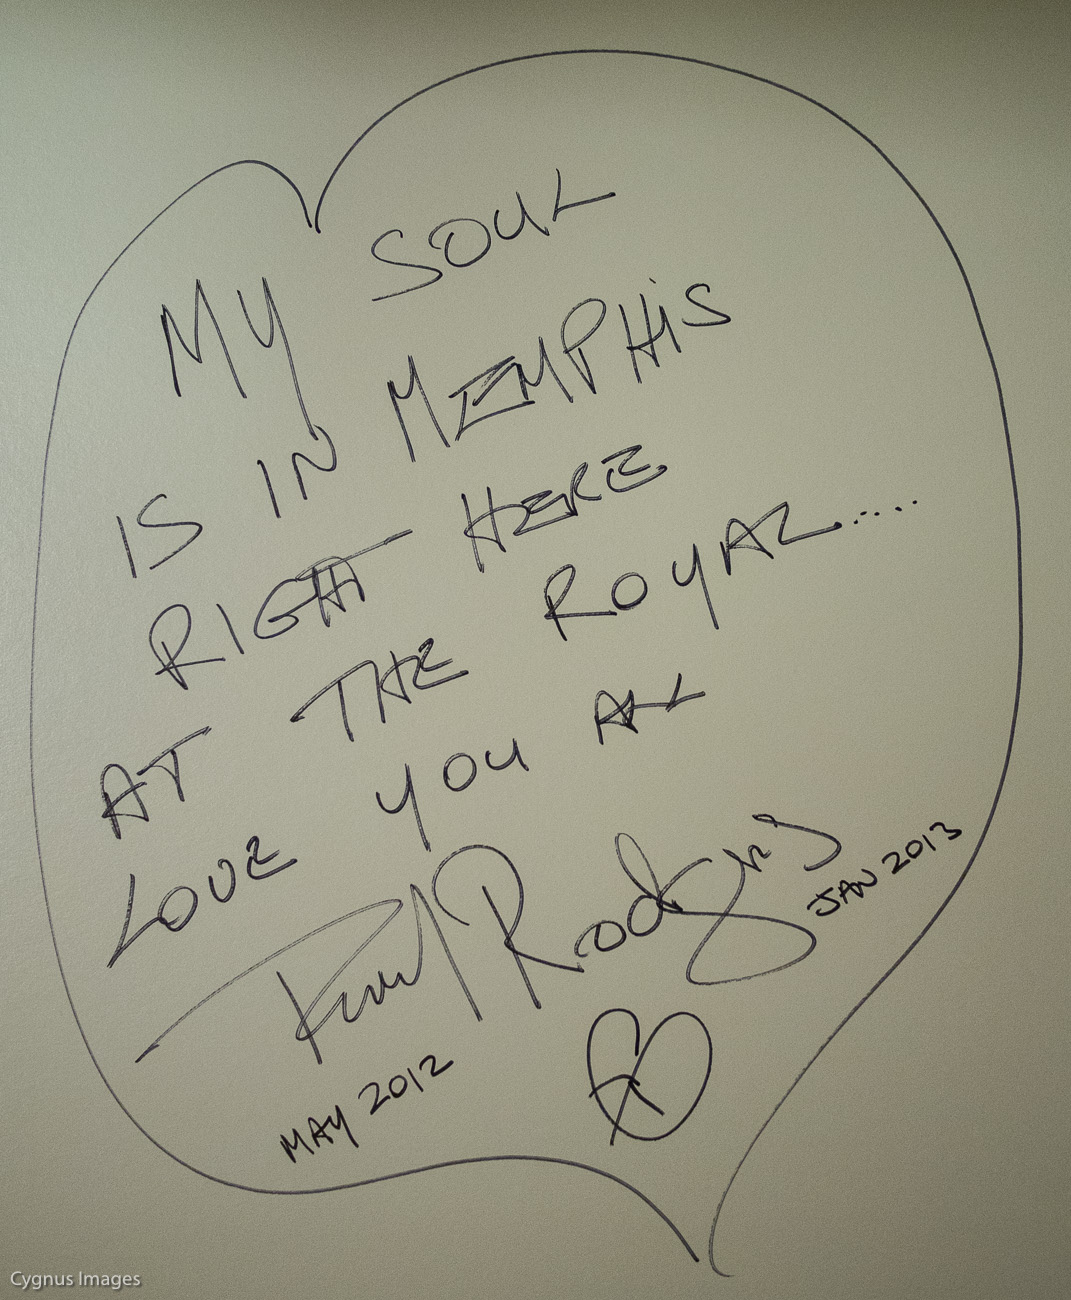 MY SOUL
IS IN MEMPHIS
RIGHT HERE
AT THE ROYAL.....
LOVE YOU ALL
Paul Rodgers
JAN 2013
MAY 2012
Cygnus Images